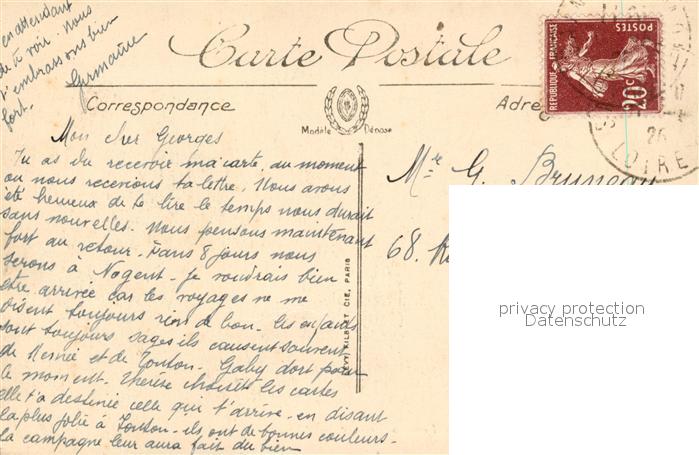 en attendant
de te voir. Nous
t'embrassons bien
fort. Germaine
Carte Postale
Correspondance
Adre
Modèle Déposé
REPUBLIQUE FRANÇAISE
POSTES
20c
26
LOIRE
Mon cher Georges
Tu as du recevoir ma carte, au moment
ou nous recevions ta lettre. Nous avons
été heureux de te lire le temps nous durait
sans nouvelles. Nous pensons maintenant
fort au retour. Dans 8 jours nous
serons à Nogent. Je voudrais bien
etre arrivée car les voyages ne me
disent toujours rien de bon. Les enfants
sont toujours sages ils causent souvent
de Mémée et de Tonton. Gaby dort pour
le moment. Thérèse choisit les cartes
elle t'a destinée celle qui t'arrive en disant
la plus jolie à Tonton - ils ont de bonnes couleurs -
la campagne leur aura fait du bien
Mr. G. Bruneau
68.
LEVY & NILBET CIE, PARIS
privacy protection
Datenschutz